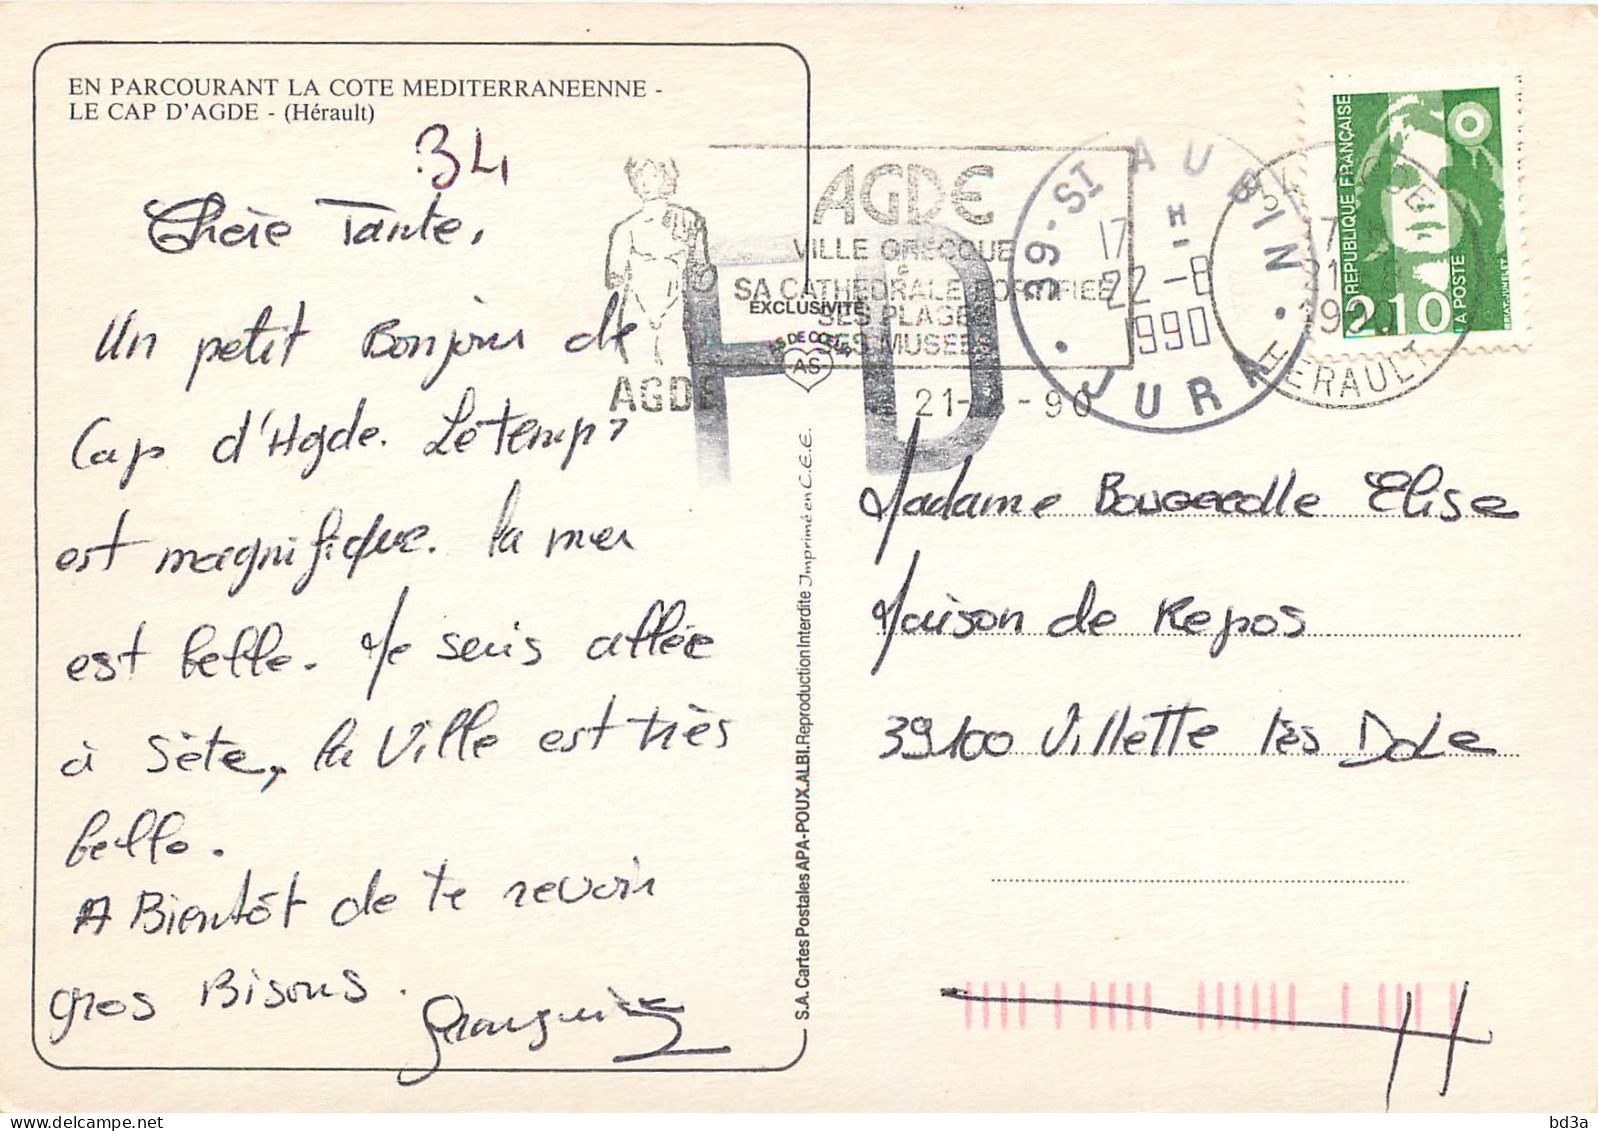 EN PARCOURANT LA COTE MEDITERRANEENNE -
LE CAP D'AGDE - (Hérault)
34
Chère Tante,
Un petit Bonjour de
Cap d'Agde. Le temps
est magnifique. la mer
est belle. Je suis allée
à Sète, la Ville est très
belle.
A Bientôt de te revoir
gros Bisous.
AGDE
AGDE
VILLE GRECQUE
SA CATHEDRALE FORTIFIEE
SES PLAGES
SES MUSEES
21-8-90
EXCLUSIVITÉ
AS DE COEUR
AS
FD
39-ST AUBIN
17 H
22-8
1990
JURA
34 AGDE
17 H
21
1990
HERAULT
REPUBLIQUE FRANÇAISE
2,10
LA POSTE
BRIAT-JUMELET
Madame Elise
Maison de Repos
39100 Villette lès Dole
S.A. Cartes Postales APA-POUX.ALBI. Reproduction Interdite Imprimé en C.E.E.
bd3a